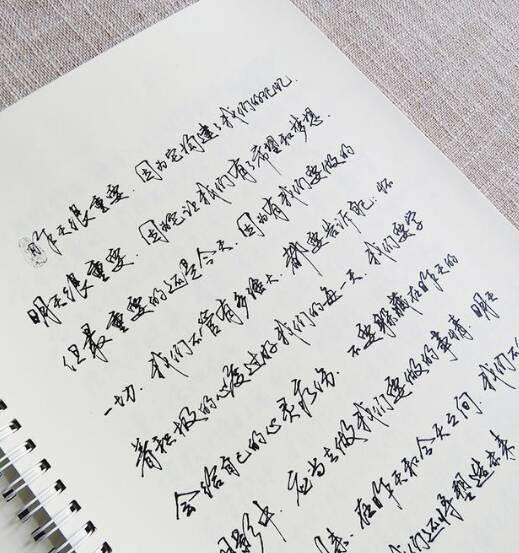 昨天很重要,因为它构建了我们的记忆.
明天很重要,因为它让我们有了希望和梦想.
但最重要的还是今天,因为有我们要做的
一切.我们不管有多难大都要告诉自己.怀
着积极的心度过好我们的每一天.我们要学
会给自己的心灵疗伤.不要躲藏在昨天的
阴影中.应当去做我们要做的事情.明天
来.在昨天和今天之间.我们不
我们还将塑造未来